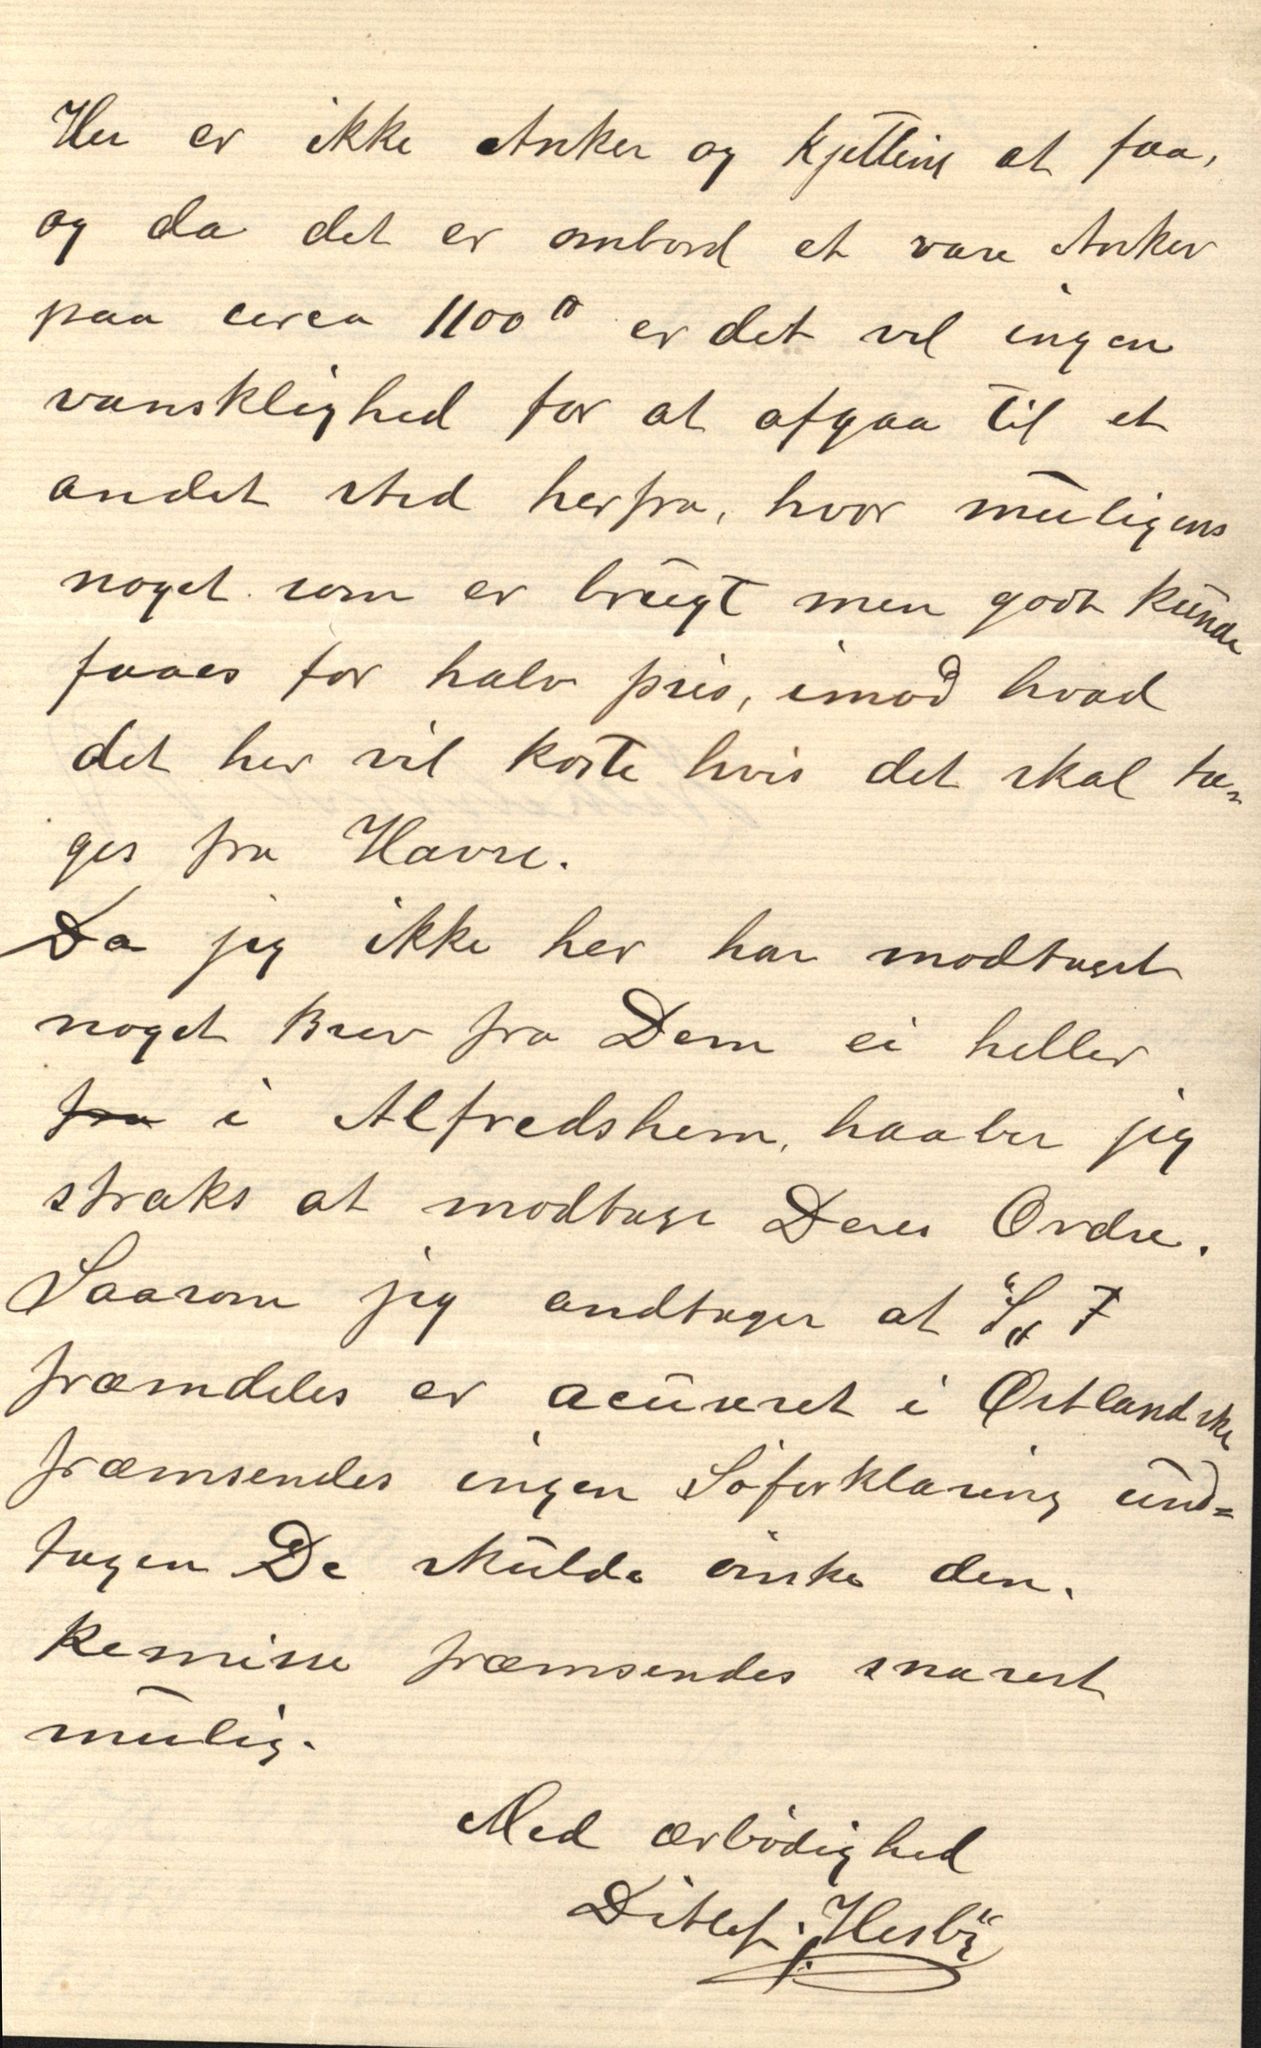 Her er ikke Anker og Kjetting at faa,
og da det er ombord et vare Anker
paa circa 1100 er det vel ingen
vansklighed for at afgaa til et
andet sted herfra, hvor muligens
noget som er brugt men godt kunde
faaes for halv pris, imod hvad
det her vil koste hvis det skal ta=
ges fra Havre.
Da jeg ikke her har modtaget
noget Brev fra Dem ei heller
fra i Alfredshem, haaber jeg
straks at modtage Deres Ordre.
Saasom jeg andtager at
fræmdeles er acureret i Østlandske
fræmsendes ingen Søforklaring und=
tagen De skulde ønske den.
Remisse fræmsendes snarest
mulig.
Med ærbødighed
Ditlef. Hesby